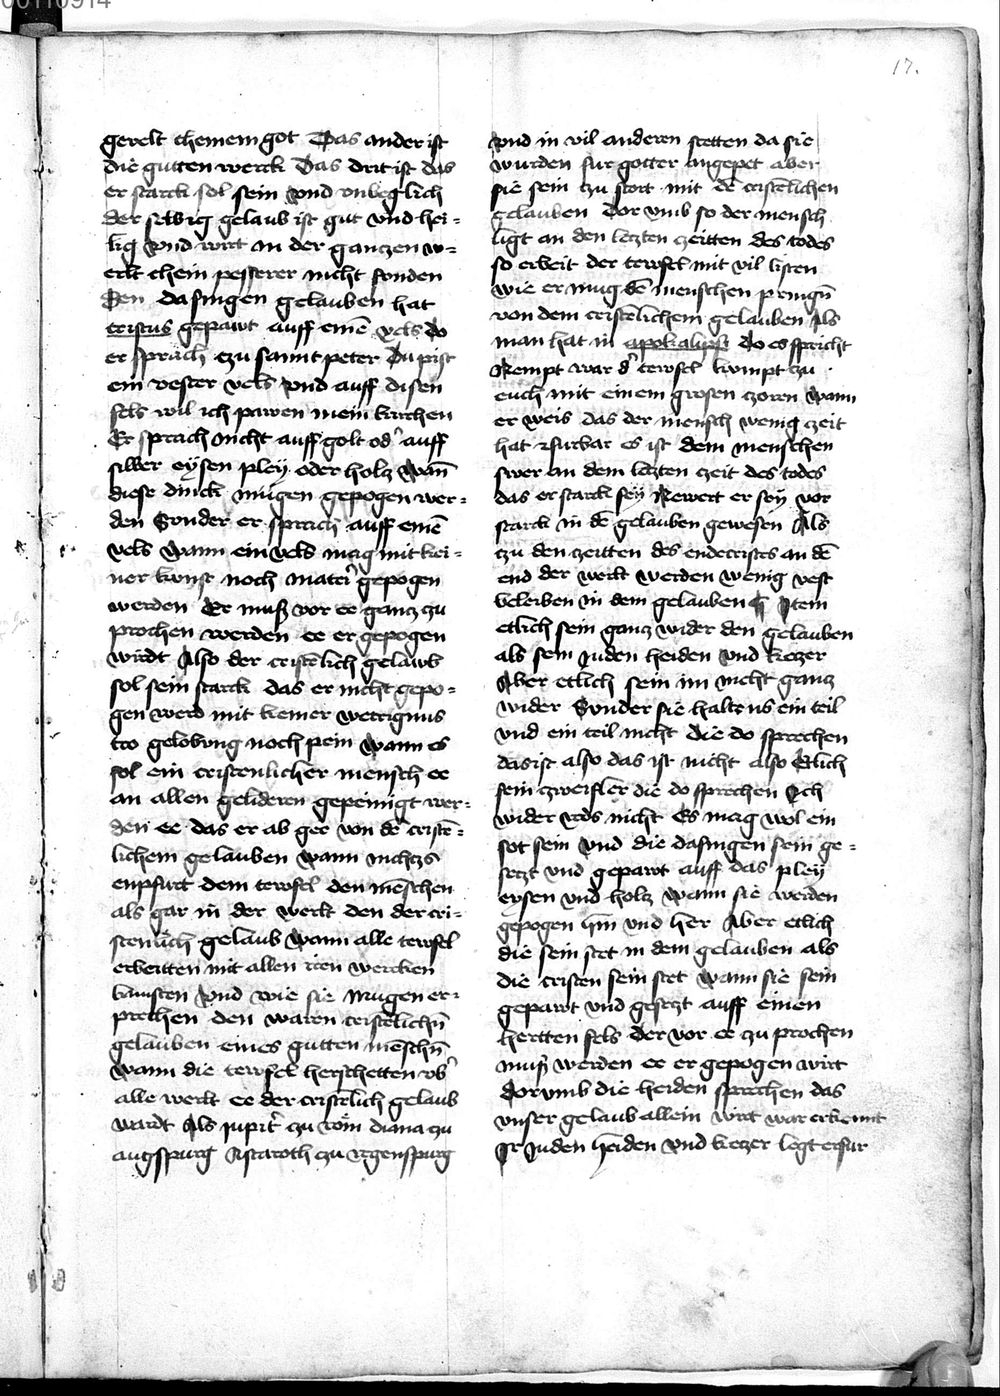 17.
gevelt chemem got Das ander ist
die gutten werck Das drit ist das
er starck sol sein vnd vnbeglich
der selbig gelaub ist gut vnd hei=
lig vnd wirt in der gantzen w=
erlt chein pesserer nicht fonden
Den dasingen gelauben hat
cristus gepawt auff einē vels do
er sprach czu sannt peter Du pist
ein vester vels vnd auff disen
fels wil ich pawen mein kirchen
Er sprach nicht auff golt od' auff
silber eysen pley oder holtz Wañ
diese dinck mugen gepogen wer=
den Sonder er sprach auff einē
vels Wann ein vels mag mit kei=
ner kunst noch materi gepogen
werden Er muß vor ee gantz zu
prochen werden ee er gepogen
wirdt Also der cristēlich gelawb
sol sein starck das er nicht gepo=
gen werd mit keiner wetrignus
tro gelobung noch pein wann es
sol ein cristenlicher mensch ee
an allen gelideren gepeinigt wer=
den ee das er ab gee von dē cristē=
lichem gelauben wann nichtzs
enpfurt dem tewfel den mēschen
als gar in der werlt den der cri=
stenlich gelaub Wann alle tewfel
erbeitten mit allen iren wercken
kunsten vnd wie sie mugen er=
prechen den waren cristēlichñ
gelauben eines gutten mēschñ
wann die tewfel herschetten vb'
alle werlt ee der cristēlich gelaub
wardt Als jupit' zu rom diana zu
augspurg Astaroth zu regenspurg
vnd in vil anderen stetten da sie
wurden fur gotter angepet aber
sie sein czu stort mit dē cristēlichen
gelauben Dor vmb so der mensch
ligt an den letzten zeitten des todes
so erbeit der tewfel mit vil listen
wie er mug dē menschen pringñ
von dem cristēlichem gelauben Als
man hat in apokalipsi do es spricht
Nempt war d' tewfel kumpt zu
euch mit einem grosen zoren Wann
er weis das der mensch wenig zeit
hat furbar es ist dem menschen
swer an dem letzten zeit des todes
das er starck sey Newert er sey vor
starck in dē gelauben gewesen Als
zu den zeitten des endecristes an dē
end der werlt werden wenig vest
beleiben in dem gelauben Item
etlich sein gantz wider den gelauben
als sein Juden heiden vnd ketzer
Aber etlich sein im nicht gantz
wider Sunder sie haltens ein teil
vnd ein teil nicht die do sprechen
das ist also das ist nicht also Etlich
sein zweifler die do sprechen Ich
wider reds nicht Es mag wol ein
got sein vnd die dasingen sein ge=
setzt vnd gepawt auff das pley
eysen vnd holtz wann sie werden
gepogen hin vnd her Aber etlich
die sein stet in dem gelauben als
die cristen sein stet wann sie sein
gepawt vnd gesetzt auff einen
hertten fels der vor ee zu prochen
muß werden ee er gepogen wirt
dorvmb die heiden sprechen das
vnser gelaub allein wirt war erkennt
Ir Juden heiden vnd ketzer legt erfur